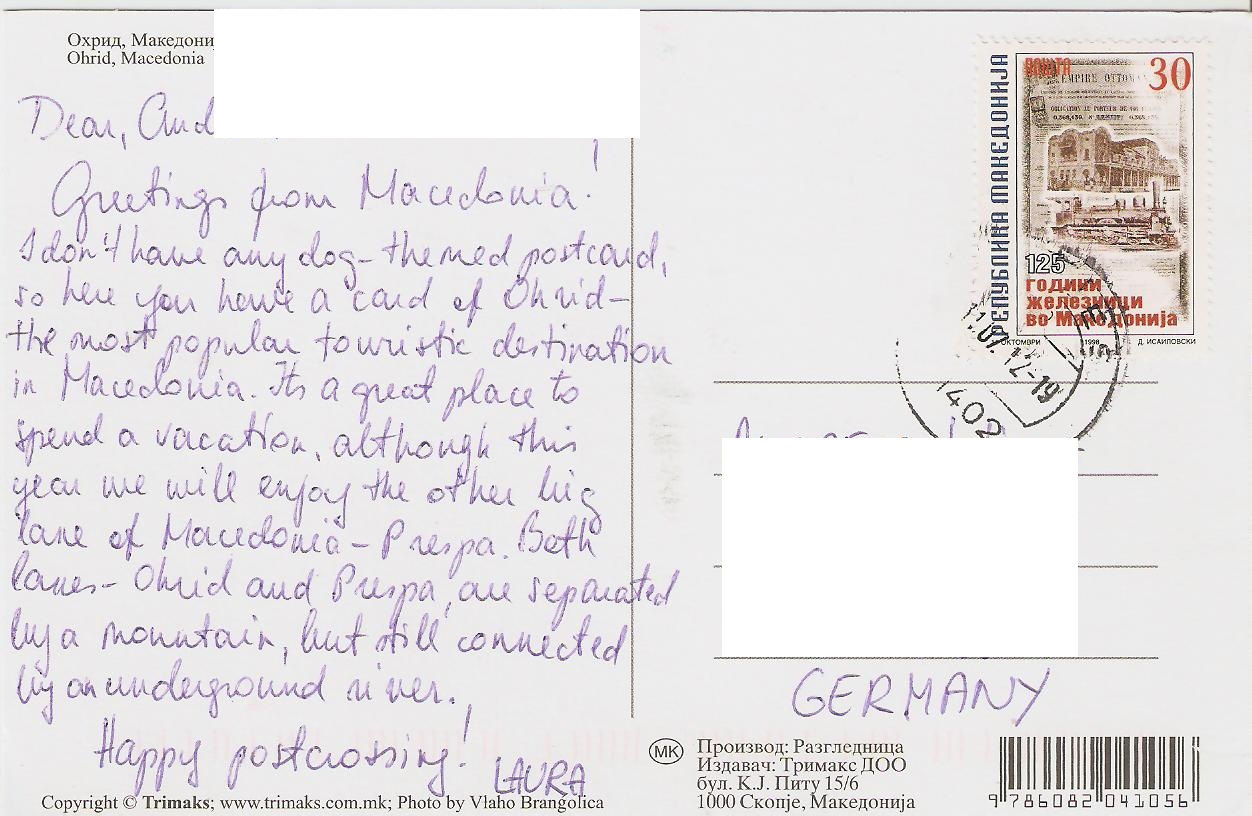 Охрид, Македони
Ohrid, Macedonia
Dear, And
Greetings from Macedonia!
I don't have any dog-themed postcard,
so here you have a card of Ohrid-
the most popular touristic destination
in Macedonia. Its a great place to
spend a vacation, although this
year we will enjoy the other big
lake of Macedonia - Prespa. Both
lakes - Ohrid and Prespa, are separated
by a mountain, but still connected
by an underground river.
Happy postcrossing!
LAURA
Copyright © Trimaks; www.trimaks.com.mk; Photo by Vlaho Brangolica
РЕПУБЛИКА МАКЕДОНИЈА
ПОШТА
30
EMPIRE OTTOMA
125
ГОДИНИ
ЖЕЛЕЗНИЦИ
ВО МАКЕДОНИЈА
ОКТОМВРИ 1998 Д. ИСАИЛОВСКИ
-19
1402
GERMANY
MK
Производ: Разгледница
Издавач: Тримакс ДОО
бул. К.Ј. Питу 15/6
1000 Скопје, Македонија
9 786082 041056